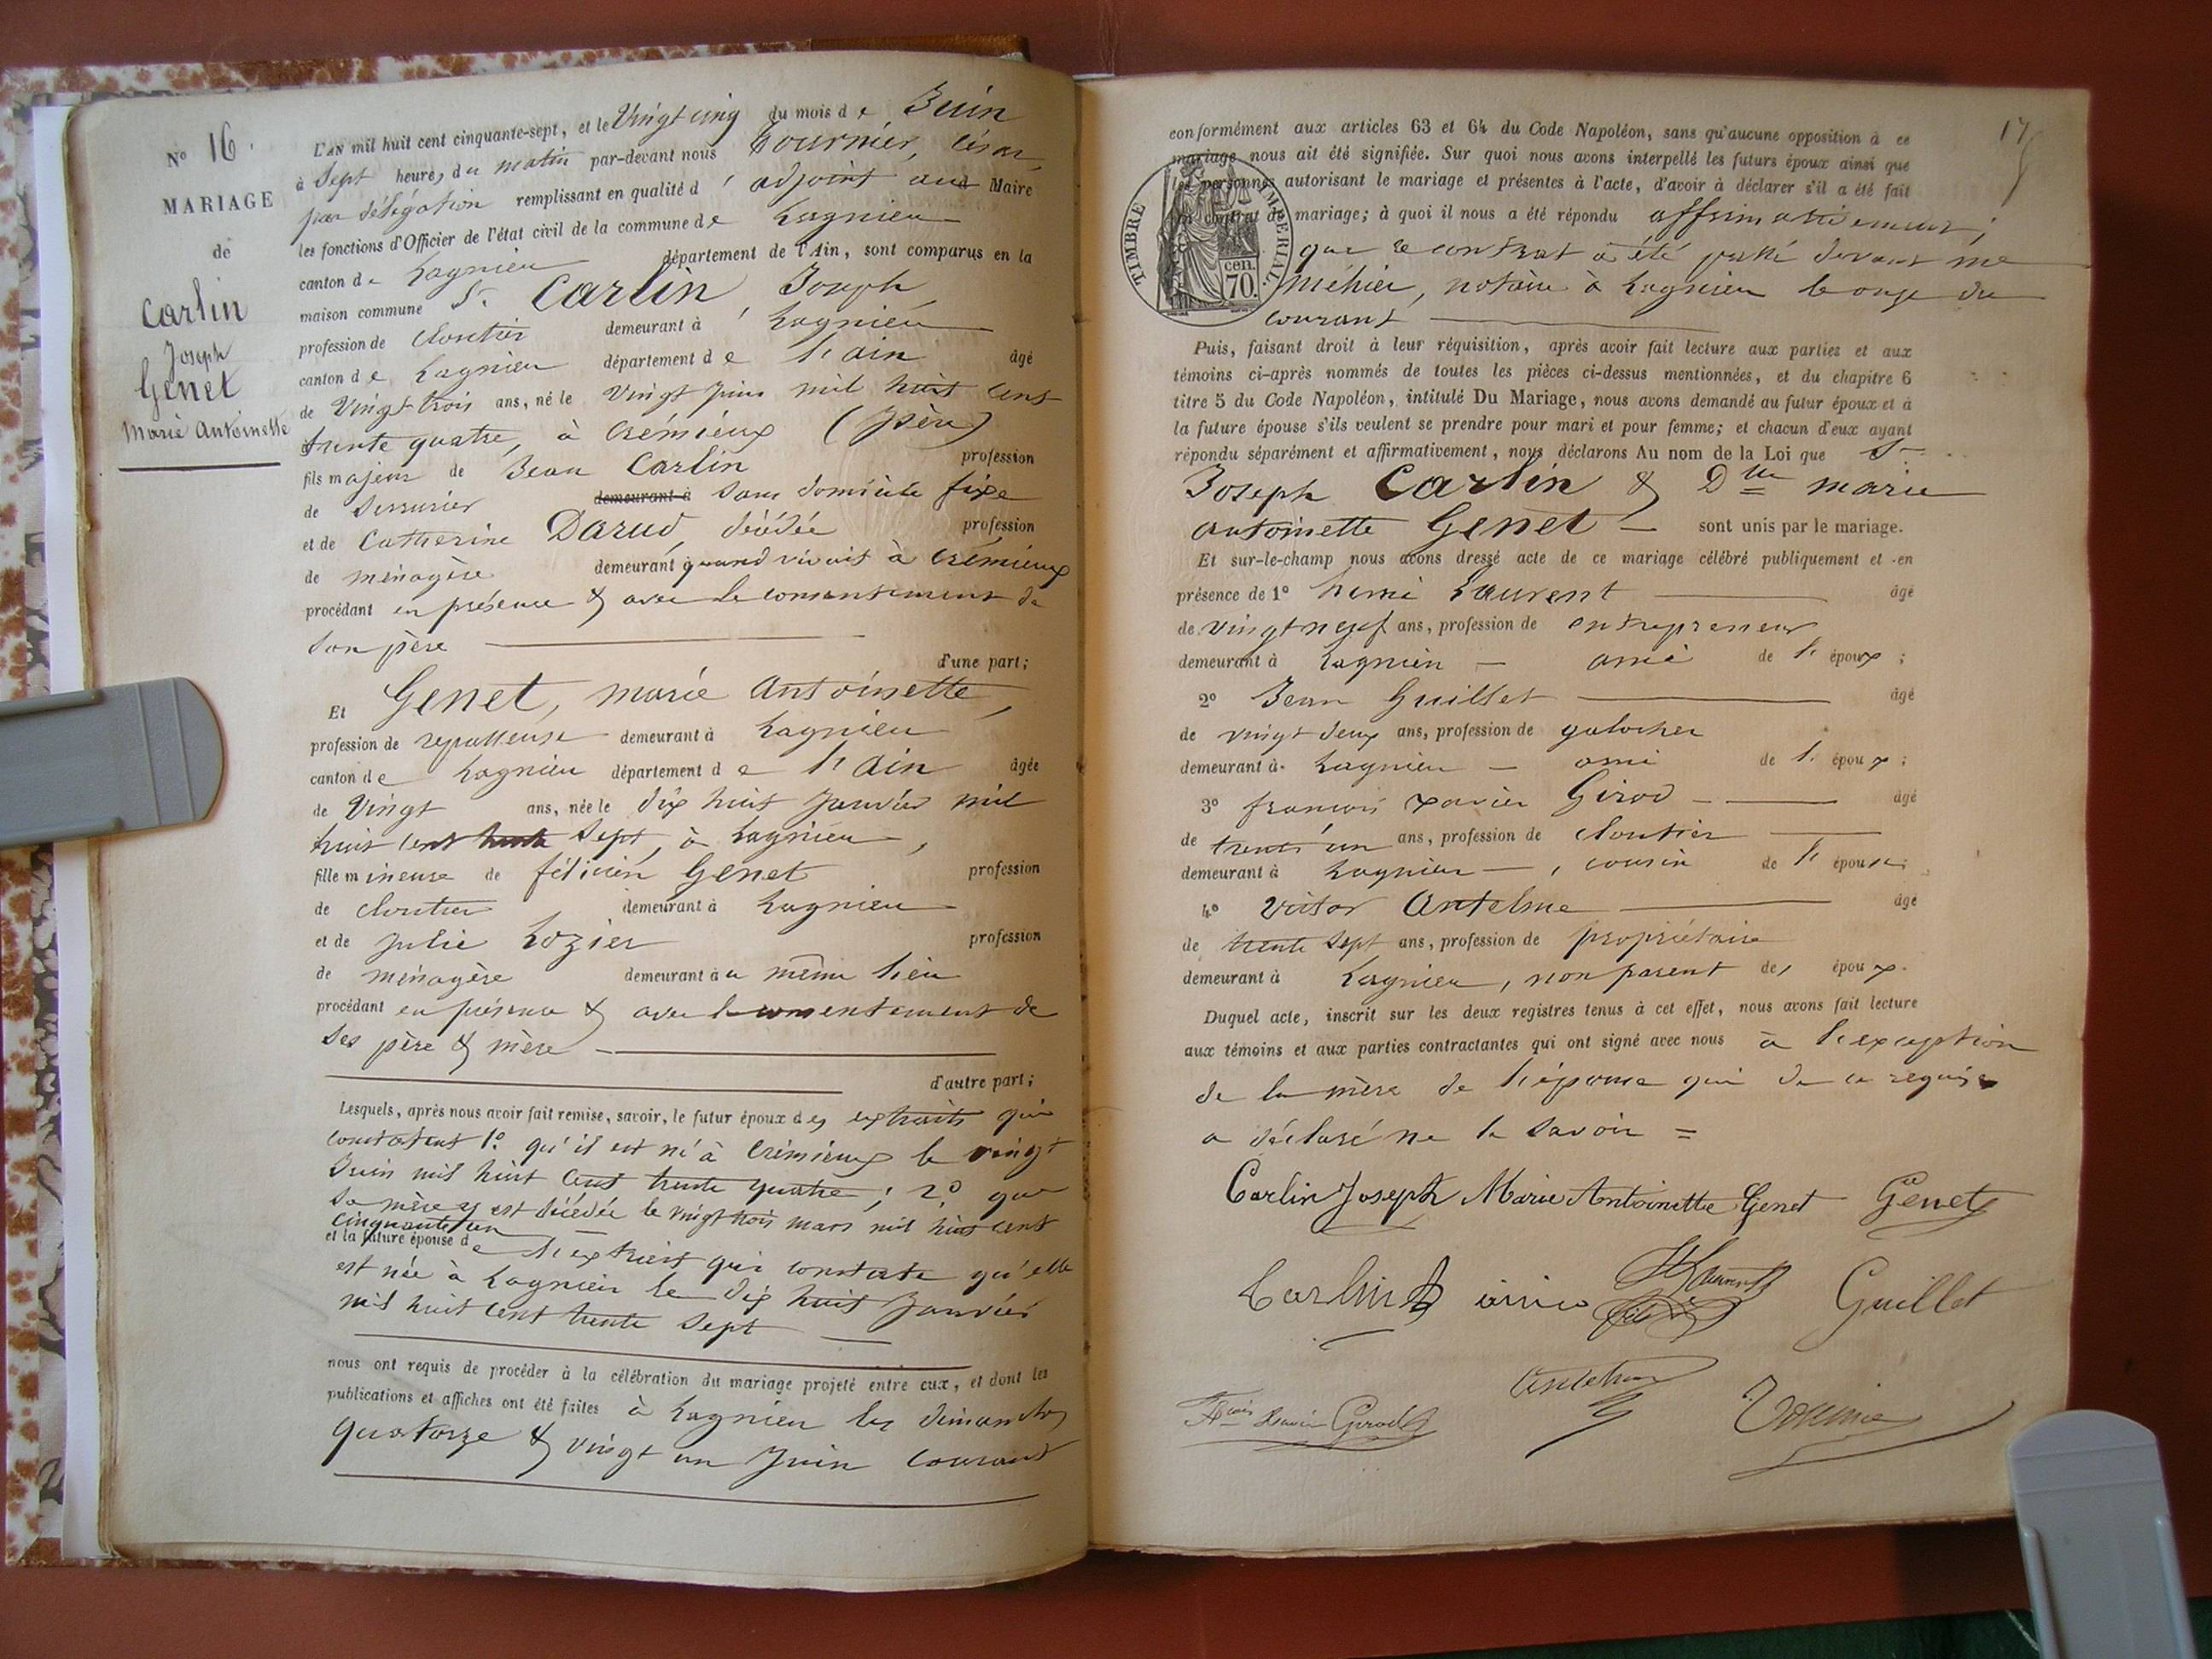 N° 16.
MARIAGE
de
Carlin
Joseph
Genet
Marie Antoinette
L'AN mil huit cent cinquante-sept, et le Vingt cinq du mois de Juin
à Sept heures du matin par-devant nous tournier, César,
par délégation remplissant en qualité d'adjoint au Maire
les fonctions d'Officier de l'état civil de la commune de Lagnieu
canton de Lagnieu département de l'Ain, sont comparus en la
maison commune Sr. Carlin, Joseph,
profession de cloutier demeurant à Lagnieu
canton de Lagnieu département de l'ain âgé
de Vingt-trois ans, né le vingt juin mil huit cent
trente quatre, à Crémieux (Isère)
fils majeur de Jean Carlin profession
de serrurier demeurant à sans domicile fixe
et de Catherine Darud, décédée profession
de ménagère demeurant quand vivait à Crémieux
procédant en présence & avec le consentement de
son père
d'une part;
Et Genet, marie Antoinette,
profession de repasseuse demeurant à Lagnieu
canton de Lagnieu département de l'Ain âgée
de Vingt ans, née le dix huit Janvier mil
huit cent trente sept, à Lagnieu,
fille mineure de félicien Genet profession
de cloutier demeurant à Lagnieu
et de Julie Lozier profession
de ménagère demeurant au même lieu
procédant en présence & avec le consentement de
ses père & mère
d'autre part;
Lesquels, après nous avoir fait remise, savoir, le futur époux des extraits qui
constatent 1.° qu'il est né à Crémieux le vingt
Juin mil huit cent trente quatre; 2° que
sa mère y est décédée le vingt trois mars mil huit cent
cinquante un
et la future épouse de l'extrait qui constate qu'elle
est née à Lagnieu le dix huit Janvier
mil huit cent trente sept
nous ont requis de procéder à la célébration du mariage projeté entre eux, et dont les
publications et affiches ont été faites à Lagnieu les dimanches
quatorze & vingt un Juin courant
17
conformément aux articles 63 et 64 du Code Napoléon, sans qu'aucune opposition à ce
mariage nous ait été signifiée. Sur quoi nous avons interpellé les futurs époux ainsi que
les personnes autorisant le mariage et présentes à l'acte, d'avoir à déclarer s'il a été fait
un contrat de mariage; à quoi il nous a été répondu affirmativement;
que ce contrat a été passé devant me
méhier, notaire à Lagnieu le onze du
courant
TIMBRE IMPERIAL
70 cen.
Puis, faisant droit à leur réquisition, après avoir fait lecture aux parties et aux
témoins ci-après nommés de toutes les pièces ci-dessus mentionnées, et du chapitre 6
titre 5 du Code Napoléon, intitulé Du Mariage, nous avons demandé au futur époux et à
la future épouse s'ils veulent se prendre pour mari et pour femme; et chacun d'eux ayant
répondu séparément et affirmativement, nous déclarons Au nom de la Loi que Sr
Joseph Carlin & Dlle marie
antoinette Genet sont unis par le mariage.
Et sur-le-champ nous avons dressé acte de ce mariage célébré publiquement et en
présence de 1° henri Laurent âgé
de vingt neuf ans, profession de entrepreneur
demeurant à Lagnieu ami de l'époux;
2° Jean Guillet âgé
de vingt deux ans, profession de galocher
demeurant à Lagnieu ami de l'époux;
3° françois xavier Girod âgé
de trente un ans, profession de cloutier
demeurant à Lagnieu, cousin de l'épouse;
4° Victor Antelme âgé
de trente sept ans, profession de propriétaire
demeurant à Lagnieu, non parent des époux.
Duquel acte, inscrit sur les deux registres tenus à cet effet, nous avons fait lecture
aux témoins et aux parties contractantes qui ont signé avec nous à l'exception
de la mère de l'épouse qui de ce requise
a déclaré ne le savoir =
Carlin Joseph Marie Antoinette Genet Genet
Carlin HLaurent fils Guillet
Fçois Xavier Girod Antelme